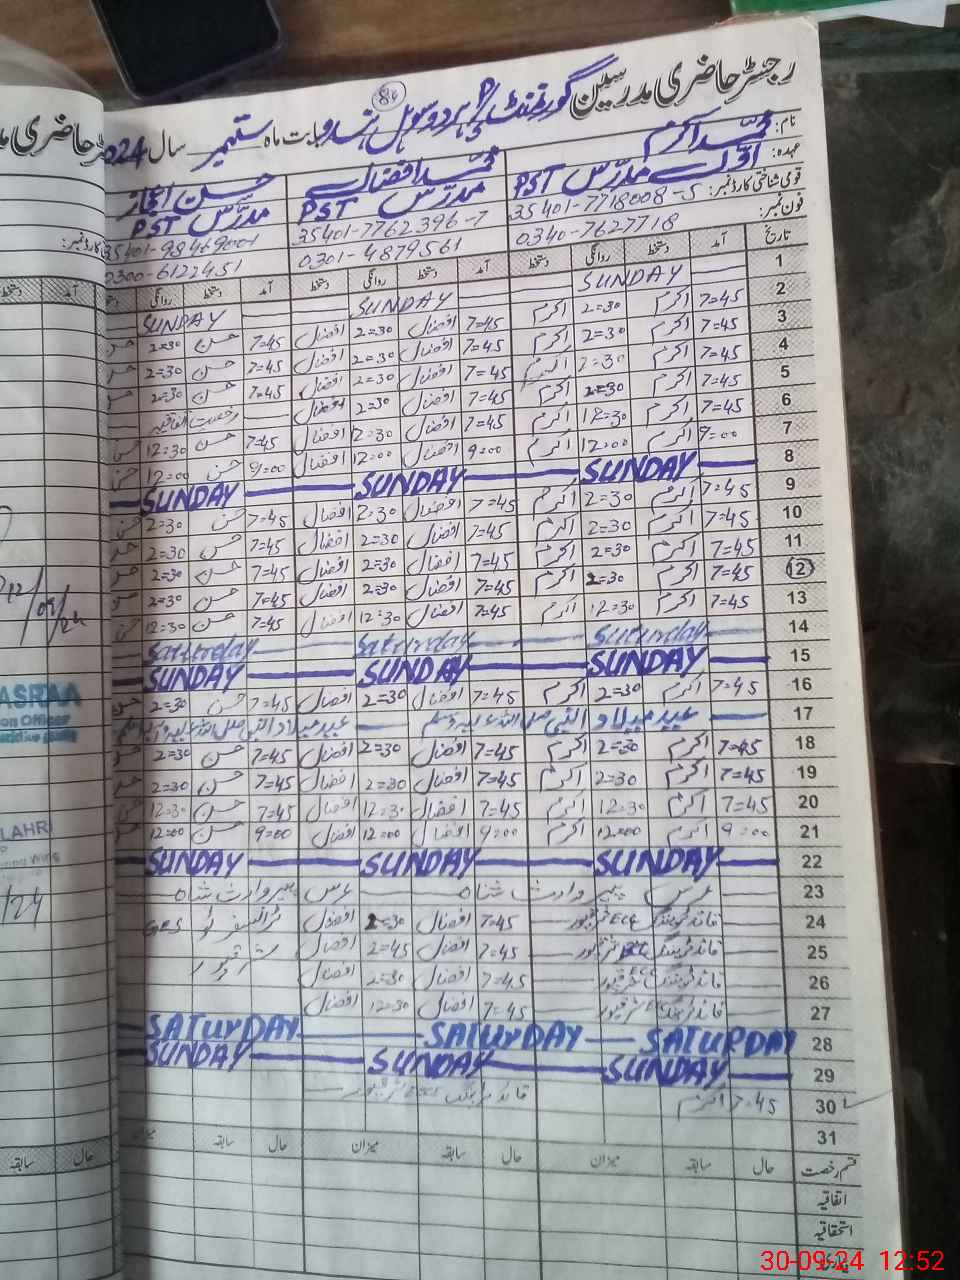 رجسٹر حاضری مدرسین گورنمنٹ
84
بابت ماہ ستمبر سال 2024
نام: محمد اکرم محمد افضال حسن اعجاز
عہدہ: اوّل مدرّس PST مدرّس PST مدرّس PST
قومی شناختی کارڈ نمبر: 35401-7718008-5 35401-7762396-7
فون نمبر: 0340-7627718 0301-4879561 0300-6122451
تاریخ آمد دستخط روانگی دستخط آمد دستخط روانگی دستخط آمد دستخط روانگی
1 SUNDAY SUNDAY SUNDAY
2 7=45 اکرم 2=30 اکرم 7=45 افضال 2=30 افضال 7=45 حسن 2=30 حسن
3 7=45 اکرم 2=30 اکرم 7=45 افضال 2=30 افضال 7=45 حسن 2=30 حسن
4 7=45 اکرم 2=30 اکرم 7=45 افضال 2=30 افضال 7=45 حسن 2=30 حسن
5 7=45 اکرم 2=30 اکرم 7=45 افضال 2=30 افضال رخصت اتفاقیہ
6 7=45 اکرم 12=30 اکرم 7=45 افضال 12=30 افضال 7=45 حسن 12=30 حسن
7 9=00 اکرم 12=00 اکرم 9=00 افضال 12=00 افضال 9=00 حسن 12=00 حسن
8 SUNDAY SUNDAY SUNDAY
9 7=45 اکرم 2=30 اکرم 7=45 افضال 2=30 افضال 7=45 حسن 2=30 حسن
10 7=45 اکرم 2=30 اکرم 7=45 افضال 2=30 افضال 7=45 حسن 2=30 حسن
11 7=45 اکرم 2=30 اکرم 7=45 افضال 2=30 افضال 7=45 حسن 2=30 حسن
12 7=45 اکرم 2=30 اکرم 7=45 افضال 2=30 افضال 7=45 حسن 2=30 حسن
13 7=45 اکرم 12=30 اکرم 7=45 افضال 12=30 افضال 7=45 حسن 12=30 حسن
14 Saturday Saturday Saturday
15 SUNDAY SUNDAY SUNDAY
16 7=45 اکرم 2=30 اکرم 7=45 افضال 2=30 افضال 7=45 حسن 2=30 حسن
17 عید میلاد النبی صلی اللہ علیہ وسلم عید میلاد النبی صلی اللہ علیہ وسلم
18 7=45 اکرم 2=30 اکرم 7=45 افضال 2=30 افضال 7=45 حسن 2=30 حسن
19 7=45 اکرم 2=30 اکرم 7=45 افضال 2=30 افضال 7=45 حسن 2=30 حسن
20 7=45 اکرم 12=30 اکرم 7=45 افضال 12=30 افضال 7=45 حسن 12=30 حسن
21 9=00 اکرم 12=00 اکرم 9=00 افضال 12=00 افضال 9=00 حسن 12=00 حسن
22 SUNDAY SUNDAY SUNDAY
23 عرس پیر وارث شاہ عرس پیر وارث شاہ
24 ECE 7=45 افضال 2=30 افضال ٹرانسفر ٹو GES
25 ECE 7=45 افضال 2=45 افضال شرقپور
26 ECE 7=45 افضال 2=30 افضال
27 ECE 7=45 افضال 12=30 افضال
28 SATURDAY SATURDAY SATURDAY
29 SUNDAY SUNDAY SUNDAY
30 7=45 اکرم
31
قسم رخصت حال سابقہ میزان حال سابقہ میزان حال سابقہ میزان
اتفاقیہ
استحقاقیہ
30-09-24 12:52